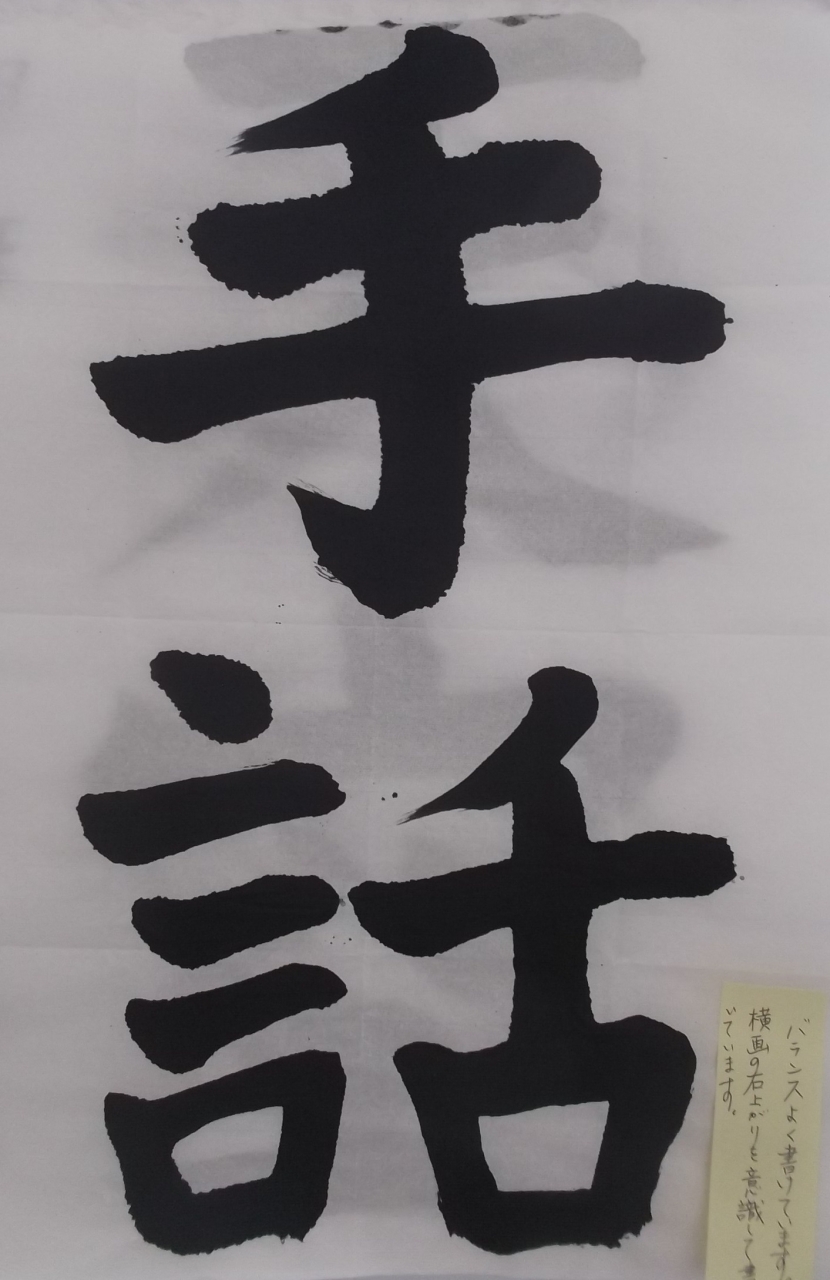 手話
バランスよく書けています。
横画の右上がりを意識して書
いています。